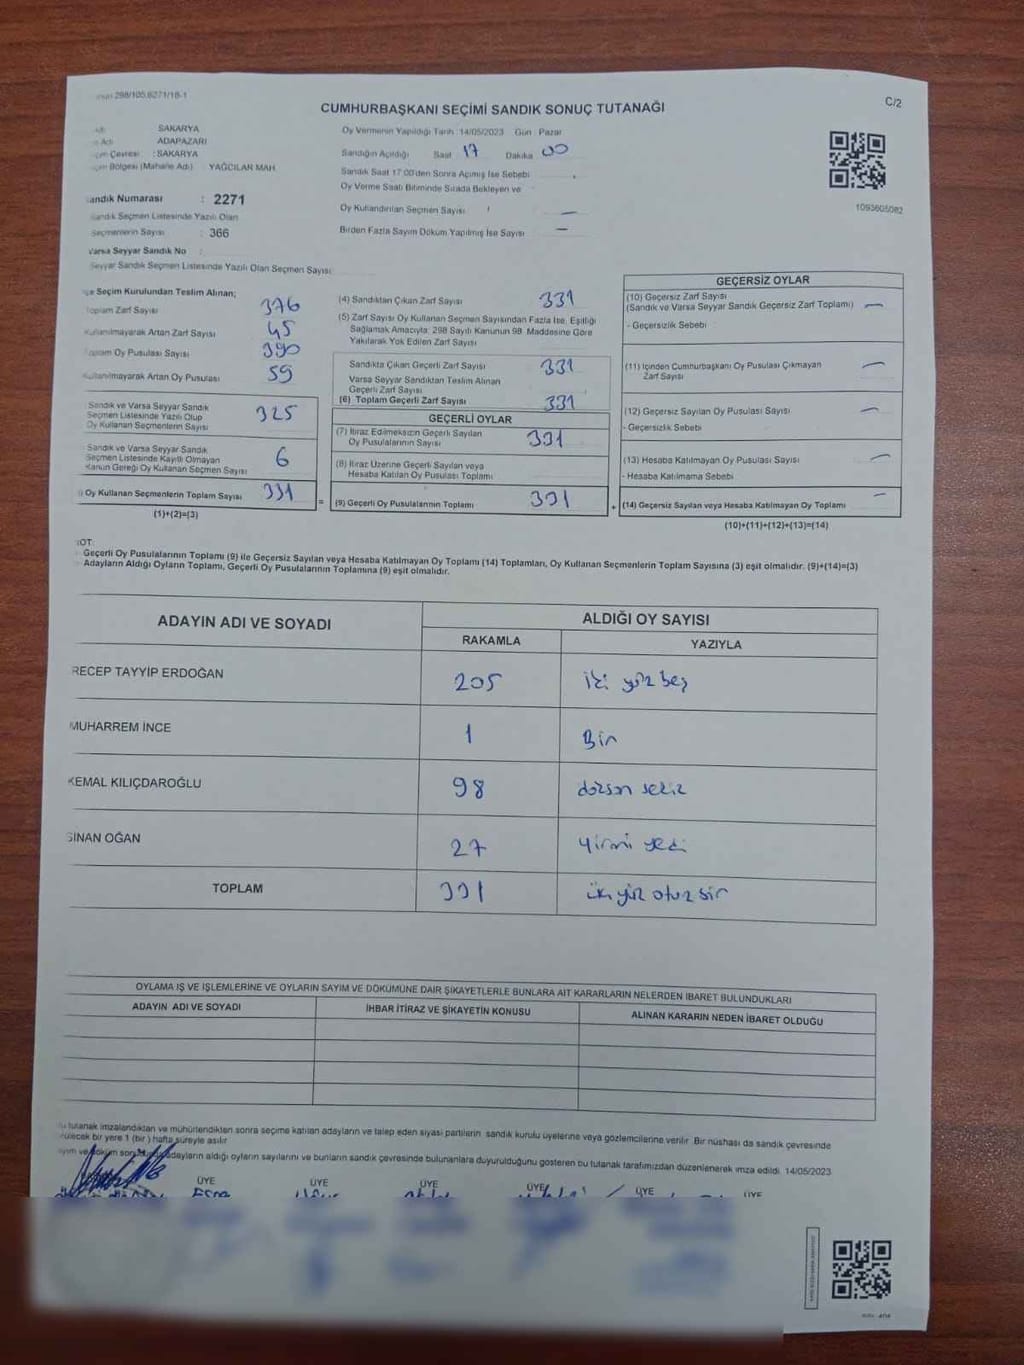 298/105,6271/18-1
C/2
CUMHURBAŞKANI SEÇİMİ SANDIK SONUÇ TUTANAĞI
SAKARYA
ADAPAZARI
: SAKARYA
Bölgesi (Mahalle Adı) : YAĞCILAR MAH.
Sandık Numarası : 2271
Sandık Seçmen Listesinde Yazılı Olan
Seçmenlerin Sayısı : 366
Varsa Seyyar Sandık No :
Seyyar Sandık Seçmen Listesinde Yazılı Olan Seçmen Sayısı:
Oy Vermenin Yapıldığı Tarih : 14/05/2023 Gün : Pazar
Sandığın Açıldığı Saat 17 Dakika 00
Sandık Saat 17:00'den Sonra Açılmış İse Sebebi
Oy Verme Saati Bitiminde Sırada Bekleyen ve
Oy Kullandırılan Seçmen Sayısı : —
Birden Fazla Sayım Döküm Yapılmış İse Sayısı —
1093605082
İlçe Seçim Kurulundan Teslim Alınan;
Toplam Zarf Sayısı 376
Kullanılmayarak Artan Zarf Sayısı 45
Toplam Oy Pusulası Sayısı 390
Kullanılmayarak Artan Oy Pusulası 59
Sandık ve Varsa Seyyar Sandık
Seçmen Listesinde Yazılı Olup
Oy Kullanan Seçmenlerin Sayısı 325
Sandık ve Varsa Seyyar Sandık
Seçmen Listesinde Kayıtlı Olmayan
Kanun Gereği Oy Kullanan Seçmen Sayısı 6
Oy Kullanan Seçmenlerin Toplam Sayısı 331
(1)+(2)=(3)
(4) Sandıktan Çıkan Zarf Sayısı 331
(5) Zarf Sayısı Oy Kullanan Seçmen Sayısından Fazla İse, Eşitliği
Sağlamak Amacıyla; 298 Sayılı Kanunun 98. Maddesine Göre
Yakılarak Yok Edilen Zarf Sayısı
Sandıkta Çıkan Geçerli Zarf Sayısı 331
Varsa Seyyar Sandıktan Teslim Alınan
Geçerli Zarf Sayısı
(6) Toplam Geçerli Zarf Sayısı 331
GEÇERLİ OYLAR
(7) İtiraz Edilmeksizin Geçerli Sayılan
Oy Pusulalarının Sayısı 331
(8) İtiraz Üzerine Geçerli Sayılan veya
Hesaba Katılan Oy Pusulası Toplamı
= (9) Geçerli Oy Pusulalarının Toplamı 331
GEÇERSİZ OYLAR
(10) Geçersiz Zarf Sayısı
(Sandık ve Varsa Seyyar Sandık Geçersiz Zarf Toplamı) —
- Geçersizlik Sebebi
(11) İçinden Cumhurbaşkanı Oy Pusulası Çıkmayan
Zarf Sayısı —
(12) Geçersiz Sayılan Oy Pusulası Sayısı —
- Geçersizlik Sebebi
(13) Hesaba Katılmayan Oy Pusulası Sayısı —
- Hesaba Katılmama Sebebi
+ (14) Geçersiz Sayılan veya Hesaba Katılmayan Oy Toplamı —
(10)+(11)+(12)+(13)=(14)
NOT:
Geçerli Oy Pusulalarının Toplamı (9) ile Geçersiz Sayılan veya Hesaba Katılmayan Oy Toplamı (14) Toplamları, Oy Kullanan Seçmenlerin Toplam Sayısına (3) eşit olmalıdır. (9)+(14)=(3)
Adayların Aldığı Oyların Toplamı, Geçerli Oy Pusulalarının Toplamına (9) eşit olmalıdır.
ADAYIN ADI VE SOYADI
ALDIĞI OY SAYISI
RAKAMLA YAZIYLA
RECEP TAYYİP ERDOĞAN 205 iki yüz beş
MUHARREM İNCE 1 Bir
KEMAL KILIÇDAROĞLU 98 doksan sekiz
SİNAN OĞAN 27 Yirmi yedi
TOPLAM 331 üçyüz otuz bir
OYLAMA İŞ VE İŞLEMLERİNE VE OYLARIN SAYIM VE DÖKÜMÜNE DAİR ŞİKAYETLERLE BUNLARA AİT KARARLARIN NELERDEN İBARET BULUNDUKLARI
ADAYIN ADI VE SOYADI İHBAR İTİRAZ VE ŞİKAYETİN KONUSU ALINAN KARARIN NEDEN İBARET OLDUĞU
tutanak imzalandıktan ve mühürlendikten sonra seçime katılan adayların ve talep eden siyasi partilerin sandık kurulu üyelerine veya gözlemcilerine verilir. Bir nüshası da sandık çevresinde
bir yere 1 (bir) hafta süreyle asılır.
adayların aldığı oyların sayılarını ve bunların sandık çevresinde bulunanlara duyurulduğunu gösteren bu tutanak tarafımızdan düzenlenerek imza edildi. 14/05/2023
ÜYE ÜYE ÜYE ÜYE ÜYE ÜYE